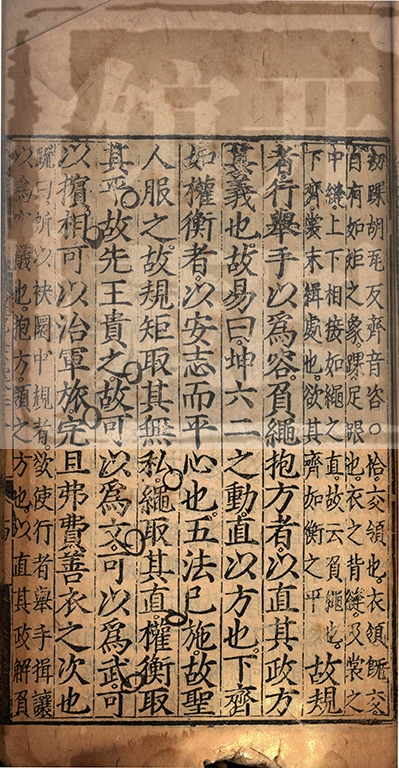 初踝胡瓦反齊音咨○袷交領也衣領旣交
自有如矩之象踝足跟也衣之背縫及裳之
中縫上下相接如繩之直故云負繩也
下齊裳末緝處也欲其齊如衡之平故規
者行舉手以爲容負繩抱方者以直其政方
其義也故易曰坤六二之動直以方也下齊
如權衡者以安志而平心也五法已施故聖
人服之故規矩取其無私繩取其直權衡取
其平故先王貴之故可以爲文可以爲武可
以擯相可以治軍旅完且弗費善衣之次也
疏曰所以袂圜中規者欲使行者舉手揖讓
以爲 儀也抱方領之方也以直其政解負